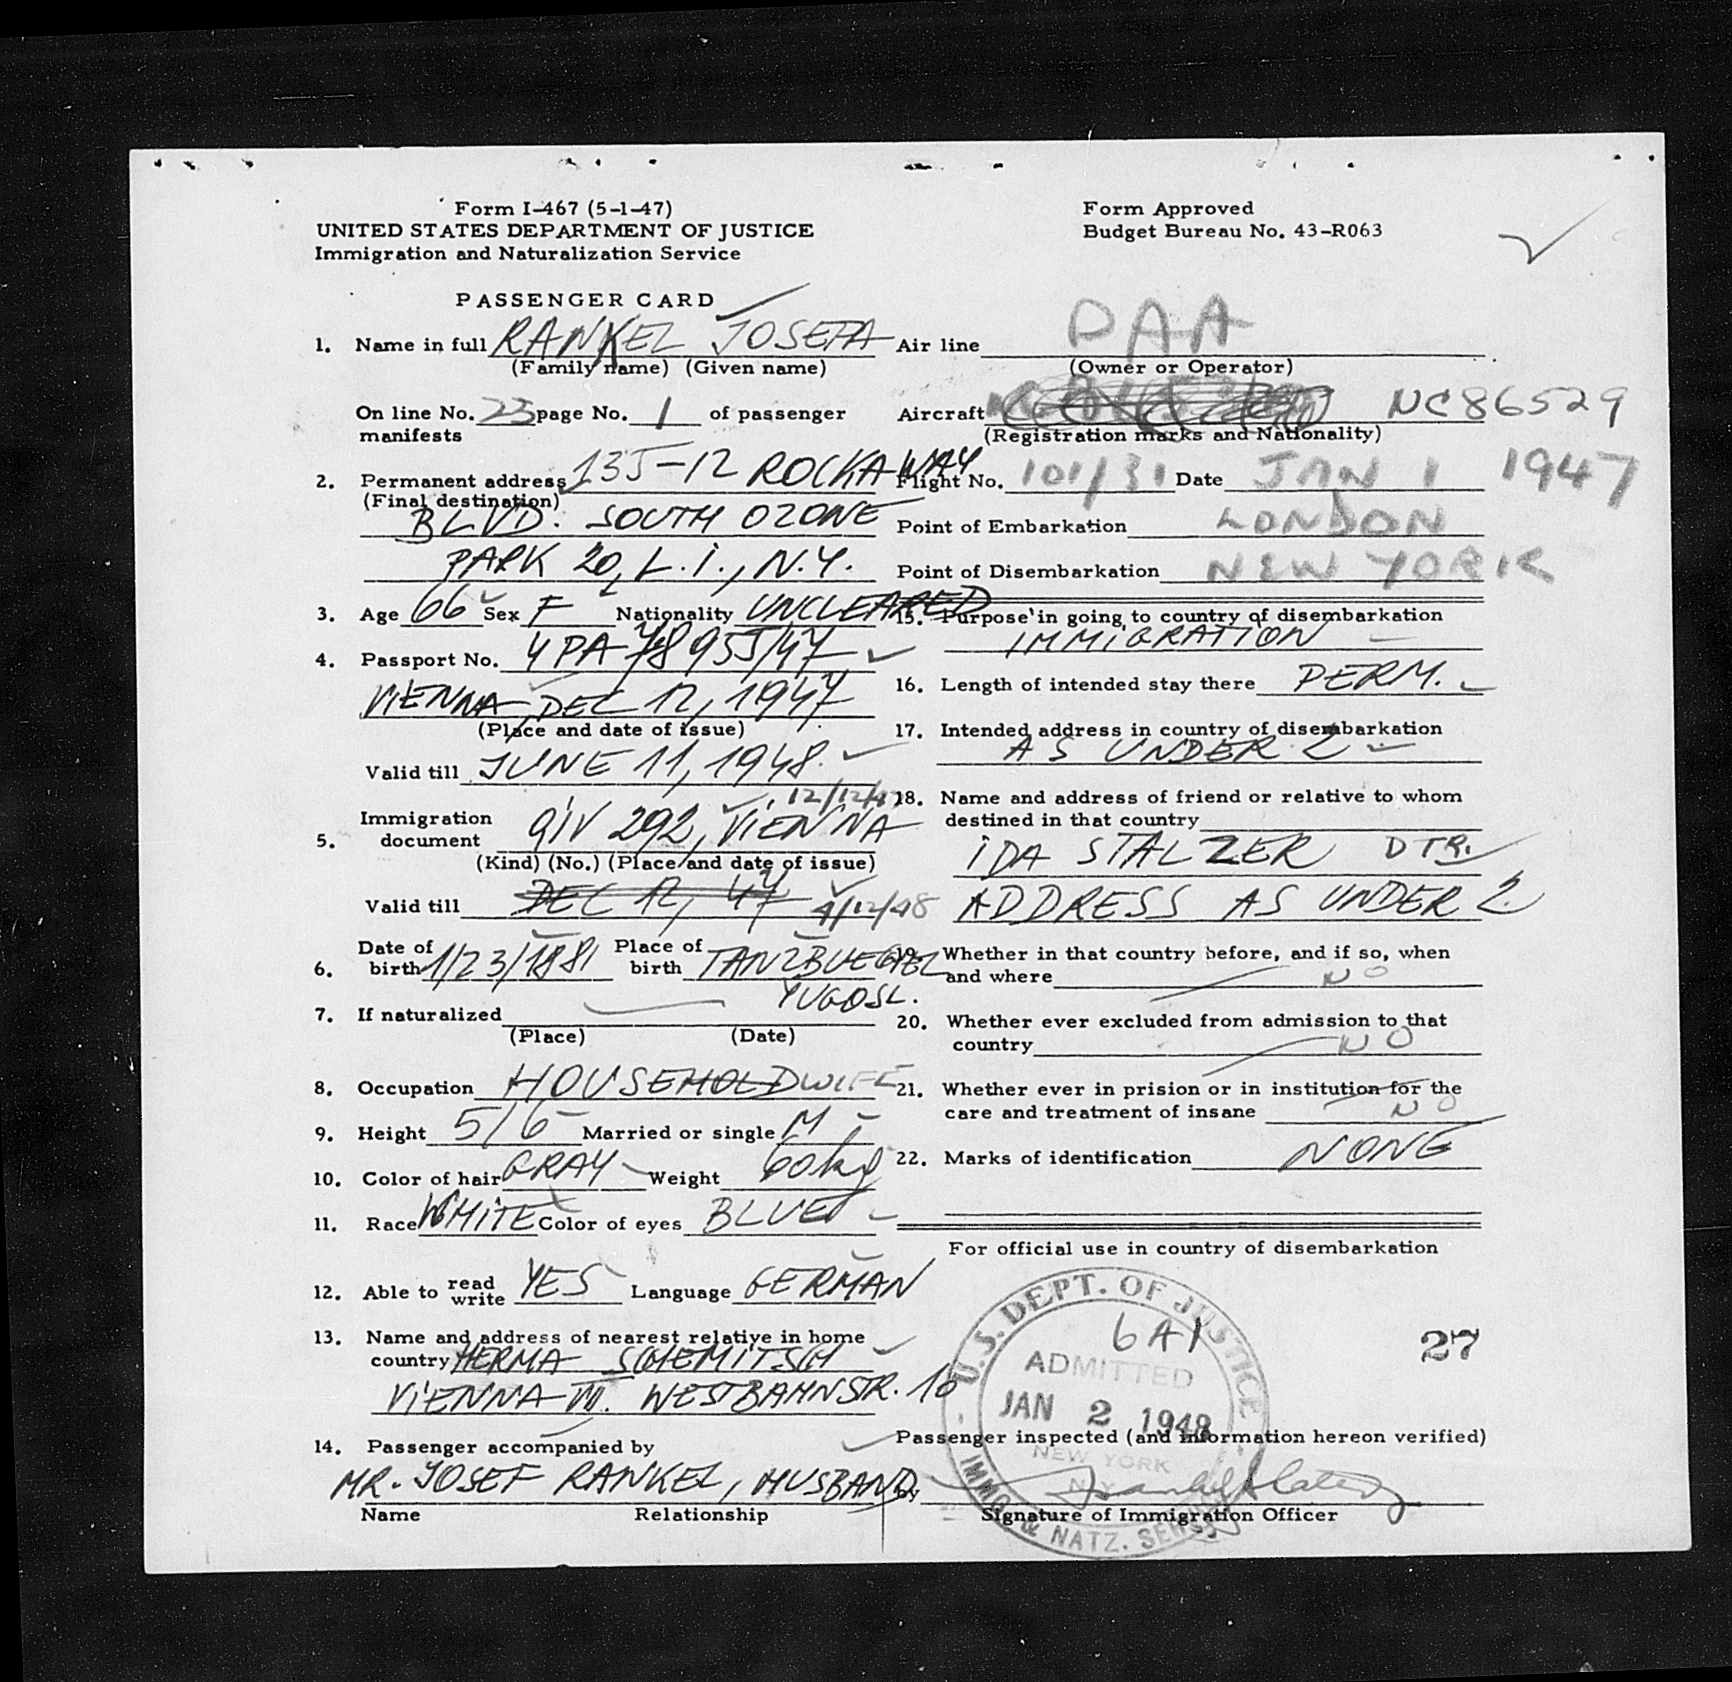 Form I-467 (5-1-47)
UNITED STATES DEPARTMENT OF JUSTICE
Immigration and Naturalization Service
Form Approved
Budget Bureau No. 43-R063
PASSENGER CARD
1. Name in full RANKEL JOSEFA
(Family name) (Given name)
On line No. 23 page No. 1 of passenger
manifests
2. Permanent address 135-12 ROCKAWAY
(Final destination)
BLVD. SOUTH OZONE
PARK 20, L.I., N.Y.
3. Age 66 Sex F Nationality UNCLEARED
4. Passport No. 4PA 78955/47
VIENNA DEC 12, 1947
(Place and date of issue)
Valid till JUNE 11, 1948.
12/12/47
5. Immigration
document QIV 292, VIENNA
(Kind) (No.) (Place and date of issue)
Valid till DEC 12, 47 4/12/48
6. Date of birth 1/23/1881 Place of birth TANZBUEGEL
YUGOSL.
7. If naturalized
(Place) (Date)
8. Occupation HOUSEHOLDWIFE
9. Height 5/6 Married or single M
10. Color of hair GRAY Weight 60kg
11. Race WHITE Color of eyes BLUE
12. Able to read write YES Language GERMAN
13. Name and address of nearest relative in home
country HERMA SCHEMITSCH
VIENNA VII. WESTBAHNSTR. 10
14. Passenger accompanied by
MR. JOSEF RANKEL, HUSBAND
Name Relationship
Air line PAA
(Owner or Operator)
Aircraft NC86529
(Registration marks and Nationality)
Flight No. 101/31 Date JAN 1 1947
Point of Embarkation LONDON
Point of Disembarkation NEW YORK
15. Purpose in going to country of disembarkation
IMMIGRATION
16. Length of intended stay there PERM.
17. Intended address in country of disembarkation
AS UNDER 2
18. Name and address of friend or relative to whom
destined in that country
IDA STALZER DTR.
ADDRESS AS UNDER 2
19. Whether in that country before, and if so, when
and where NO
20. Whether ever excluded from admission to that
country NO
21. Whether ever in prision or in institution for the
care and treatment of insane NO
22. Marks of identification NONE
For official use in country of disembarkation
U.S. DEPT. OF JUSTICE
6A1
27
ADMITTED
JAN 2 1948
Passenger inspected (and information hereon verified)
NEW YORK
N.Y.
By
Signature of Immigration Officer
IMMG. & NATZ. SERVICE